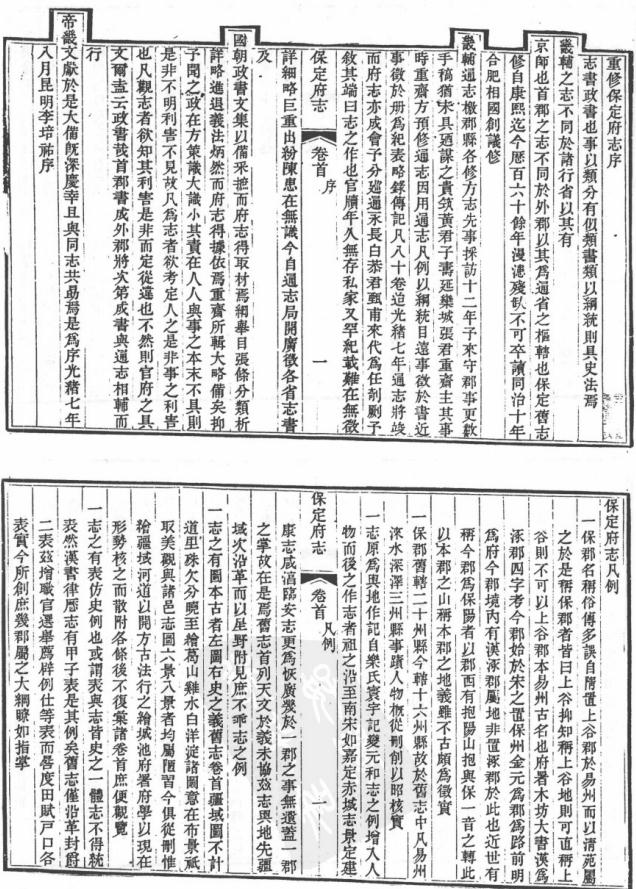 重修保定府志序
志書政書也事以類分有似類書類以綱統則具史法焉
畿輔之志不同於諸行省以其有
京師也首郡之志不同於外郡以其爲通省之樞轄也保定舊志
修自康熙迄今歷百六十餘年漫漶殘缺不可卒讀同治十年
合肥相國創議修
畿輔通志檄郡縣各修方志先事採訪十二年子來守郡事更數
手稿猶未具迺謀之貴筑黃君子壽延欒城張君重齋主其事
時重齋方預修通志因用通志凡例以綱統目遠事徵於書近
事徵於册爲紀表略錄傳記凡八十卷迨光緒七年通志將竣
而府志亦成會子分巡通永長白恭君甄甫來代爲任剞劂子
敘其端曰志之作也官牘年久無存私家又罕紀載難在無徵
保定府志 卷首 序 一
詳細略巨重出紛陳患在無識今自通志局開廣徵各省志書
及
國朝政書文集以備采摭而府志得取材焉綱舉目張條分類析
詳略進退義法炳然而府志得據依焉重齋所輯大略備矣抑
予聞之政在方策識大識小其責在人人與事之本末不具則
是非不明利害不見故凡爲志者欲考定人之是非事之利害
也凡觀志者欲知其利害是非而定從違也不然則官府之具
文爾盍云政書哉首郡書成外郡將次第成書與通志相輔而
行
帝畿文獻於是大備旣深慶幸且與同志共勗焉是爲序光緒七年
八月昆明李培祜序
保定府志凡例
一保郡名稱俗傳多誤自隋置上谷郡於易州而以清苑屬
之於是稱保郡者皆曰上谷抑知稱上谷地則可直稱上
谷則不可以上谷郡本易州古名也府署木坊大書漢爲
涿郡四字考今郡始於宋之置保州金元爲郡爲路前明
爲府今郡境內有漢涿郡屬地非置涿郡於此也近世有
稱今郡爲保陽者以郡西有抱陽山抱與保一音之轉此
以本郡之山稱本郡之地義雖不古頗爲徵實
一保郡舊轄二十州縣今轄十六州縣故於舊志中凡易州
淶水深澤三州縣事蹟人物槪從刪創以昭核實
一志原爲輿地作記自樂氏寰宇記變元和志之例增入人
物而後之作志者祖之沿至南宋如嘉定赤城志景定建
保定府志 卷首 凡例 一
康志咸淳臨安志更爲恢廣幾於一郡之事無遺蓋一郡
之掌故在是焉舊志首列天文於義未協茲志輿地先疆
域次沿革而以星野附見庶不乖志之例
一志之有圖本古者左圖右史之義舊志卷首疆域圖不計
道里殊欠分曉至繪葛山雞水白洋淀諸圖意在布景祇
取美觀與諸邑志圖六景八景者均屬陋習今俱從刪惟
繪疆域河道以開方古法行之繪城池府署府學以現在
形勢核之而散附各條後不復彙諸卷首庶便觀覽
一志之有表仿史例也或謂表與志皆史之一體志不得統
表然漢書律歷志有甲子表是其例矣舊志僅沿革封爵
二表茲增職官選舉薦辟例仕等表而晷度田賦戶口各
表實今所創庶幾郡屬之大綱瞭如指掌